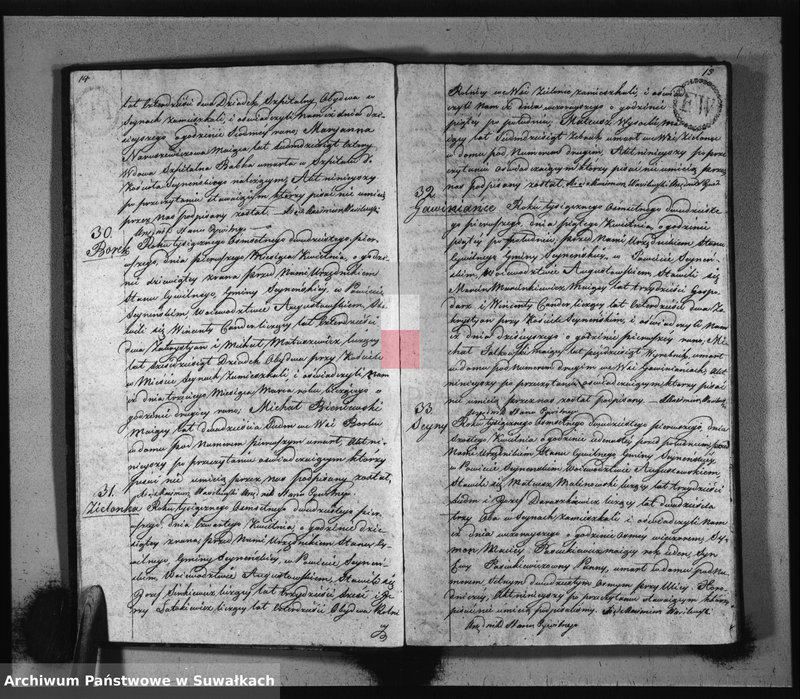 14
lat czterdzieści dwa Dziadek Szpitalny Obydwa w
Seynach zamieszkali, i oświadczyli Nam iż dnia dzi-
sieyszego o godzinie Siodmey rano, Maryanna
Naruszewiczowa Maiąca lat siedmdziesiąt cztery
Wdowa Szpitalna Babka umarła w Szpitalu do
Kościoła Seynenskiego należącym, Akt ninieyszy
po przeczytaniu stawaiącym którzy pisać nie umieią
przez nas podpisany został. Xiądz Maximian Wasilewski
Urzędnik Stanu Cywilnego
30.
Borek
Roku tysiącznego Osmsetnego dwudziestego pier-
wszego dnia pierwszego Miesiąca Kwietnia, o godzi-
nie dziewiątey zrana przed Nami Urzędnikiem
Stanu Cywilnego, Gminy Seynenskiey, w Powiecie
Seynenskim Woiewodztwie Augustowskim, Sta-
wili się Wincenty Cander liczący lat czterdzieści
dwa Zakrystyan i Michał Matusewicz liczący
lat sześćdziesiąt Dziadek Obydwa przy Kościele
w Mieście Seynach Zamieszkali, i oświadczyli Nam
iż dnia trzeciego Miesiąca Marca roku bieżącego o
godzinie drugiey rano, Michał Bieniewski
Maiący lat dwadzieścia siedm we Wsi Borku
w domu pod Numerem pierwszym umarł, Akt ni-
nieyszy po przeczytaniu oświadczaiącym którzy
pisać nie umieią przez nas podpisany został,
Xiądz Maximian Wasilewski Urzędnik Stanu Cywilnego.
31.
Zielonka
Roku tysiącznego Osmsetnego dwudziestego pier-
wszego dnia czwartego Kwietnia, o godzinie dzie-
siątey zrana, przed Nami Urzędnikiem Stanu Cy-
wilnego, Gminy Seynenskiey, w Powiecie Seynen-
skim Woiewodztwie Augustowskim, Stawili się
Jozef Sinkiewicz liczący lat trzydzieści sześć i Je-
rzy Luto kiewicz liczący lat czterdzieści Obydwa Rolni
15
Rolnicy w Wsi Zielonce zamieszkali, i oświad-
czyli Nam iż dnia wczorayszego o godzinie
piątey po południu, Mateusz Wysocki ma-
iący lat siedmdziesiąt Żebrak umarł we Wsi Zielonce
w domu pod Numerem drugim, Akt ninieyszy po prze-
czytaniu oświadczaiącym którzy pisać nie umieią przez
nas podpisany został Xiądz Maximian Wasilewski Urzędnik Stanu
32.
Gawiniance
Roku tysiącznego Osmsetnego dwudzieste-
go pierwszego, dnia piątego Kwietnia, o godzinie
piątey po południu, przed Nami Urzędnikiem Stanu
Cywilnego Gminy Seynenskiey, w Powiecie Seynen-
skim, Woiewodztwie Augustowskim, Stawili się
Marcin Murawkiewicz, Maiący lat trzydzieści Gospo-
darz i Wincenty Cander, liczący lat czterdzieści dwa Za-
krystyan przy Kościele Seynenskim, i oświadczyli Nam
iż dnia dzisieyszego o godzinie pierwszey rano, Mi-
chał Jałkowski Maiący lat pięćdziesiąt Wyrobnik, umarł
w domu pod Numerem drugim we Wsi Gawiniancach, Akt
ninieyszy po przeczytaniu oświadczaiącym którzy pisać
nie umieią przez nas został podpisany. X. Maximian Wasilewski
Urzędnik Stanu Cywilnego
33.
Seyny
Roku tysiącznego Osmsetnego dwudziestego pierwszego, dnia
szóstego Kwietnia o godzinie iedenastey przed południem, przed
Nami Urzędnikiem Stanu Cywilnego Gminy Seynenskiey
w Powiecie Seynenskim Woiewodztwie Augustowskim,
Stawili się Mateusz Malinowski liczący lat trzydzieści
siedm i Jozef Daraszkiewicz liczący lat dwadzieścia
trzy Oba w Seynach zamieszkali i oświadczyli Nam
iż dnia wczorayszego o godzinie Osmey wieczorem, Sy-
mon Maciey Pasukiewicz maiący rok ieden, Syn
Ewy Pasukiewiczowny Panny, umarł w domu pod Nu-
merem Setnym dwudziestym Osmym przy Ulicy Gro-
dnieńskiey, Akt ninieyszy po przeczytaniu stawaiącym którzy
pisać nie umieią podpisaliśmy. Xiądz Maximian Wasilewski
Urzędnik Stanu Cywilnego
Archiwum Państwowe w Suwałkach